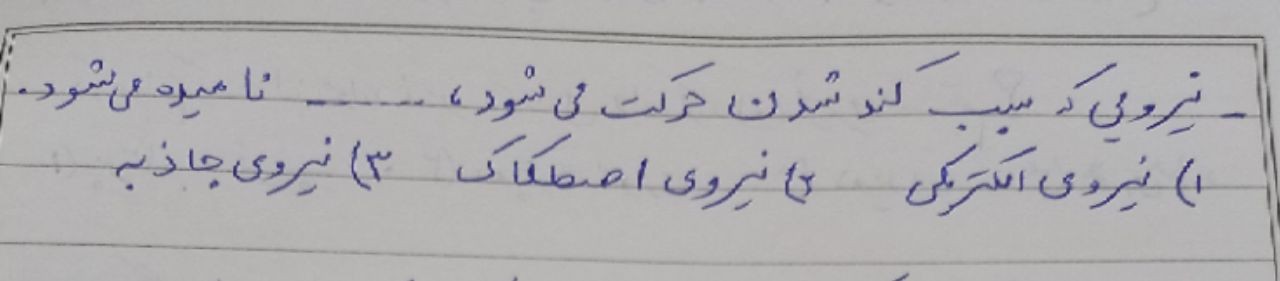 - نیرویی که سبب کند شدن حرکت می شود، ........ نامیده می شود.
۱) نیروی الکتریکی ۲) نیروی اصطکاک ۳) نیروی جاذبه